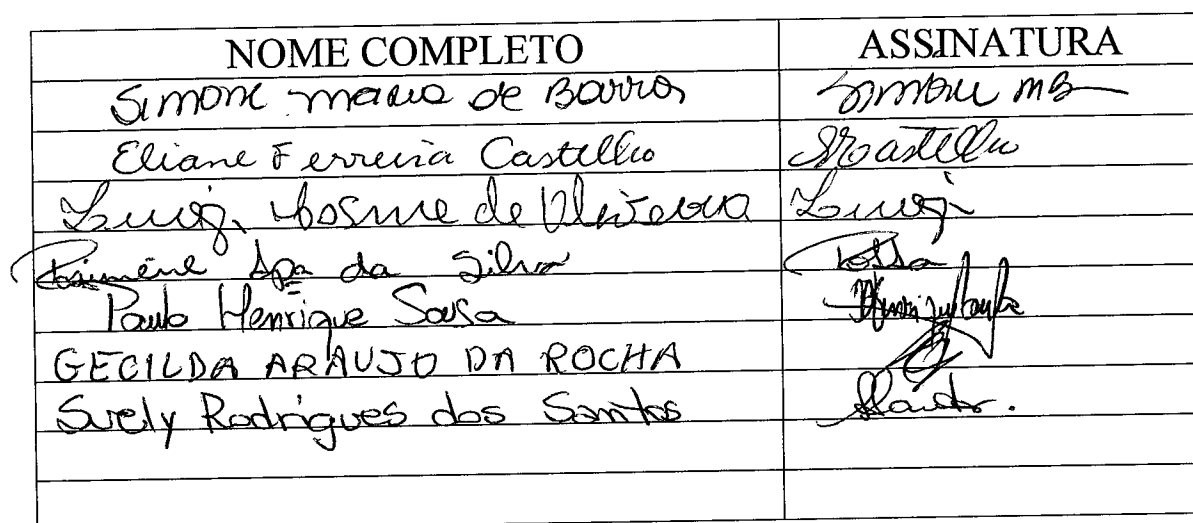 NOME COMPLETO ASSINATURA
Simone Maria de Barros Simone MB
Eliane Ferreira Castelho
Luiz Cosme de Oliveira Luiz
Apa da Silva
Paulo Henrique Sousa
GECILDA ARAUJO DA ROCHA
Suely Rodrigues dos Santos